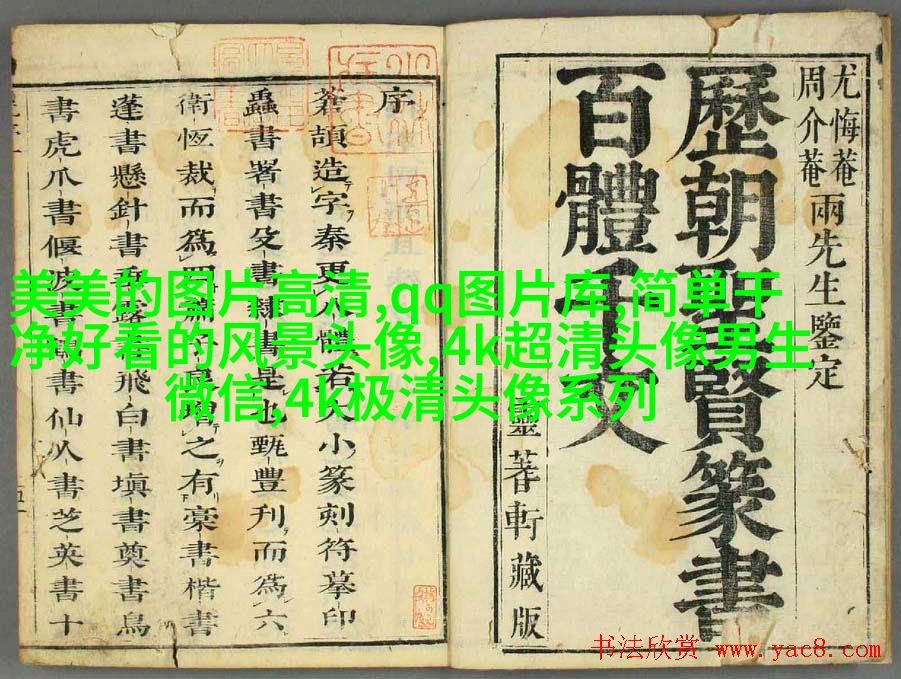 尤悔菴
周介菴
兩先生鑒定
歷朝聖賢篆書
百體千文
靈蓍軒藏版
序
蒼頡造字秦更八體若大小篆刻符摹印
蟲書署書殳書隸書是也甄豐刋而爲六
衛恆裁而爲四增之有稾書楷書
蓬書懸針書垂露書飛白書塡書奠書鳥
書虎爪書偃波書鶴書仙人書芝英書十
美美的图片高清,qq图片库,简单干
净好看的风景头像,4k超清头像男生
微信,4k极清头像系列
书法欣赏 www.yac8.com